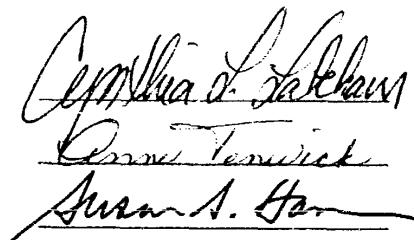 Cynthia L. Latcham
Anne Tenwick
Susan S. Ham